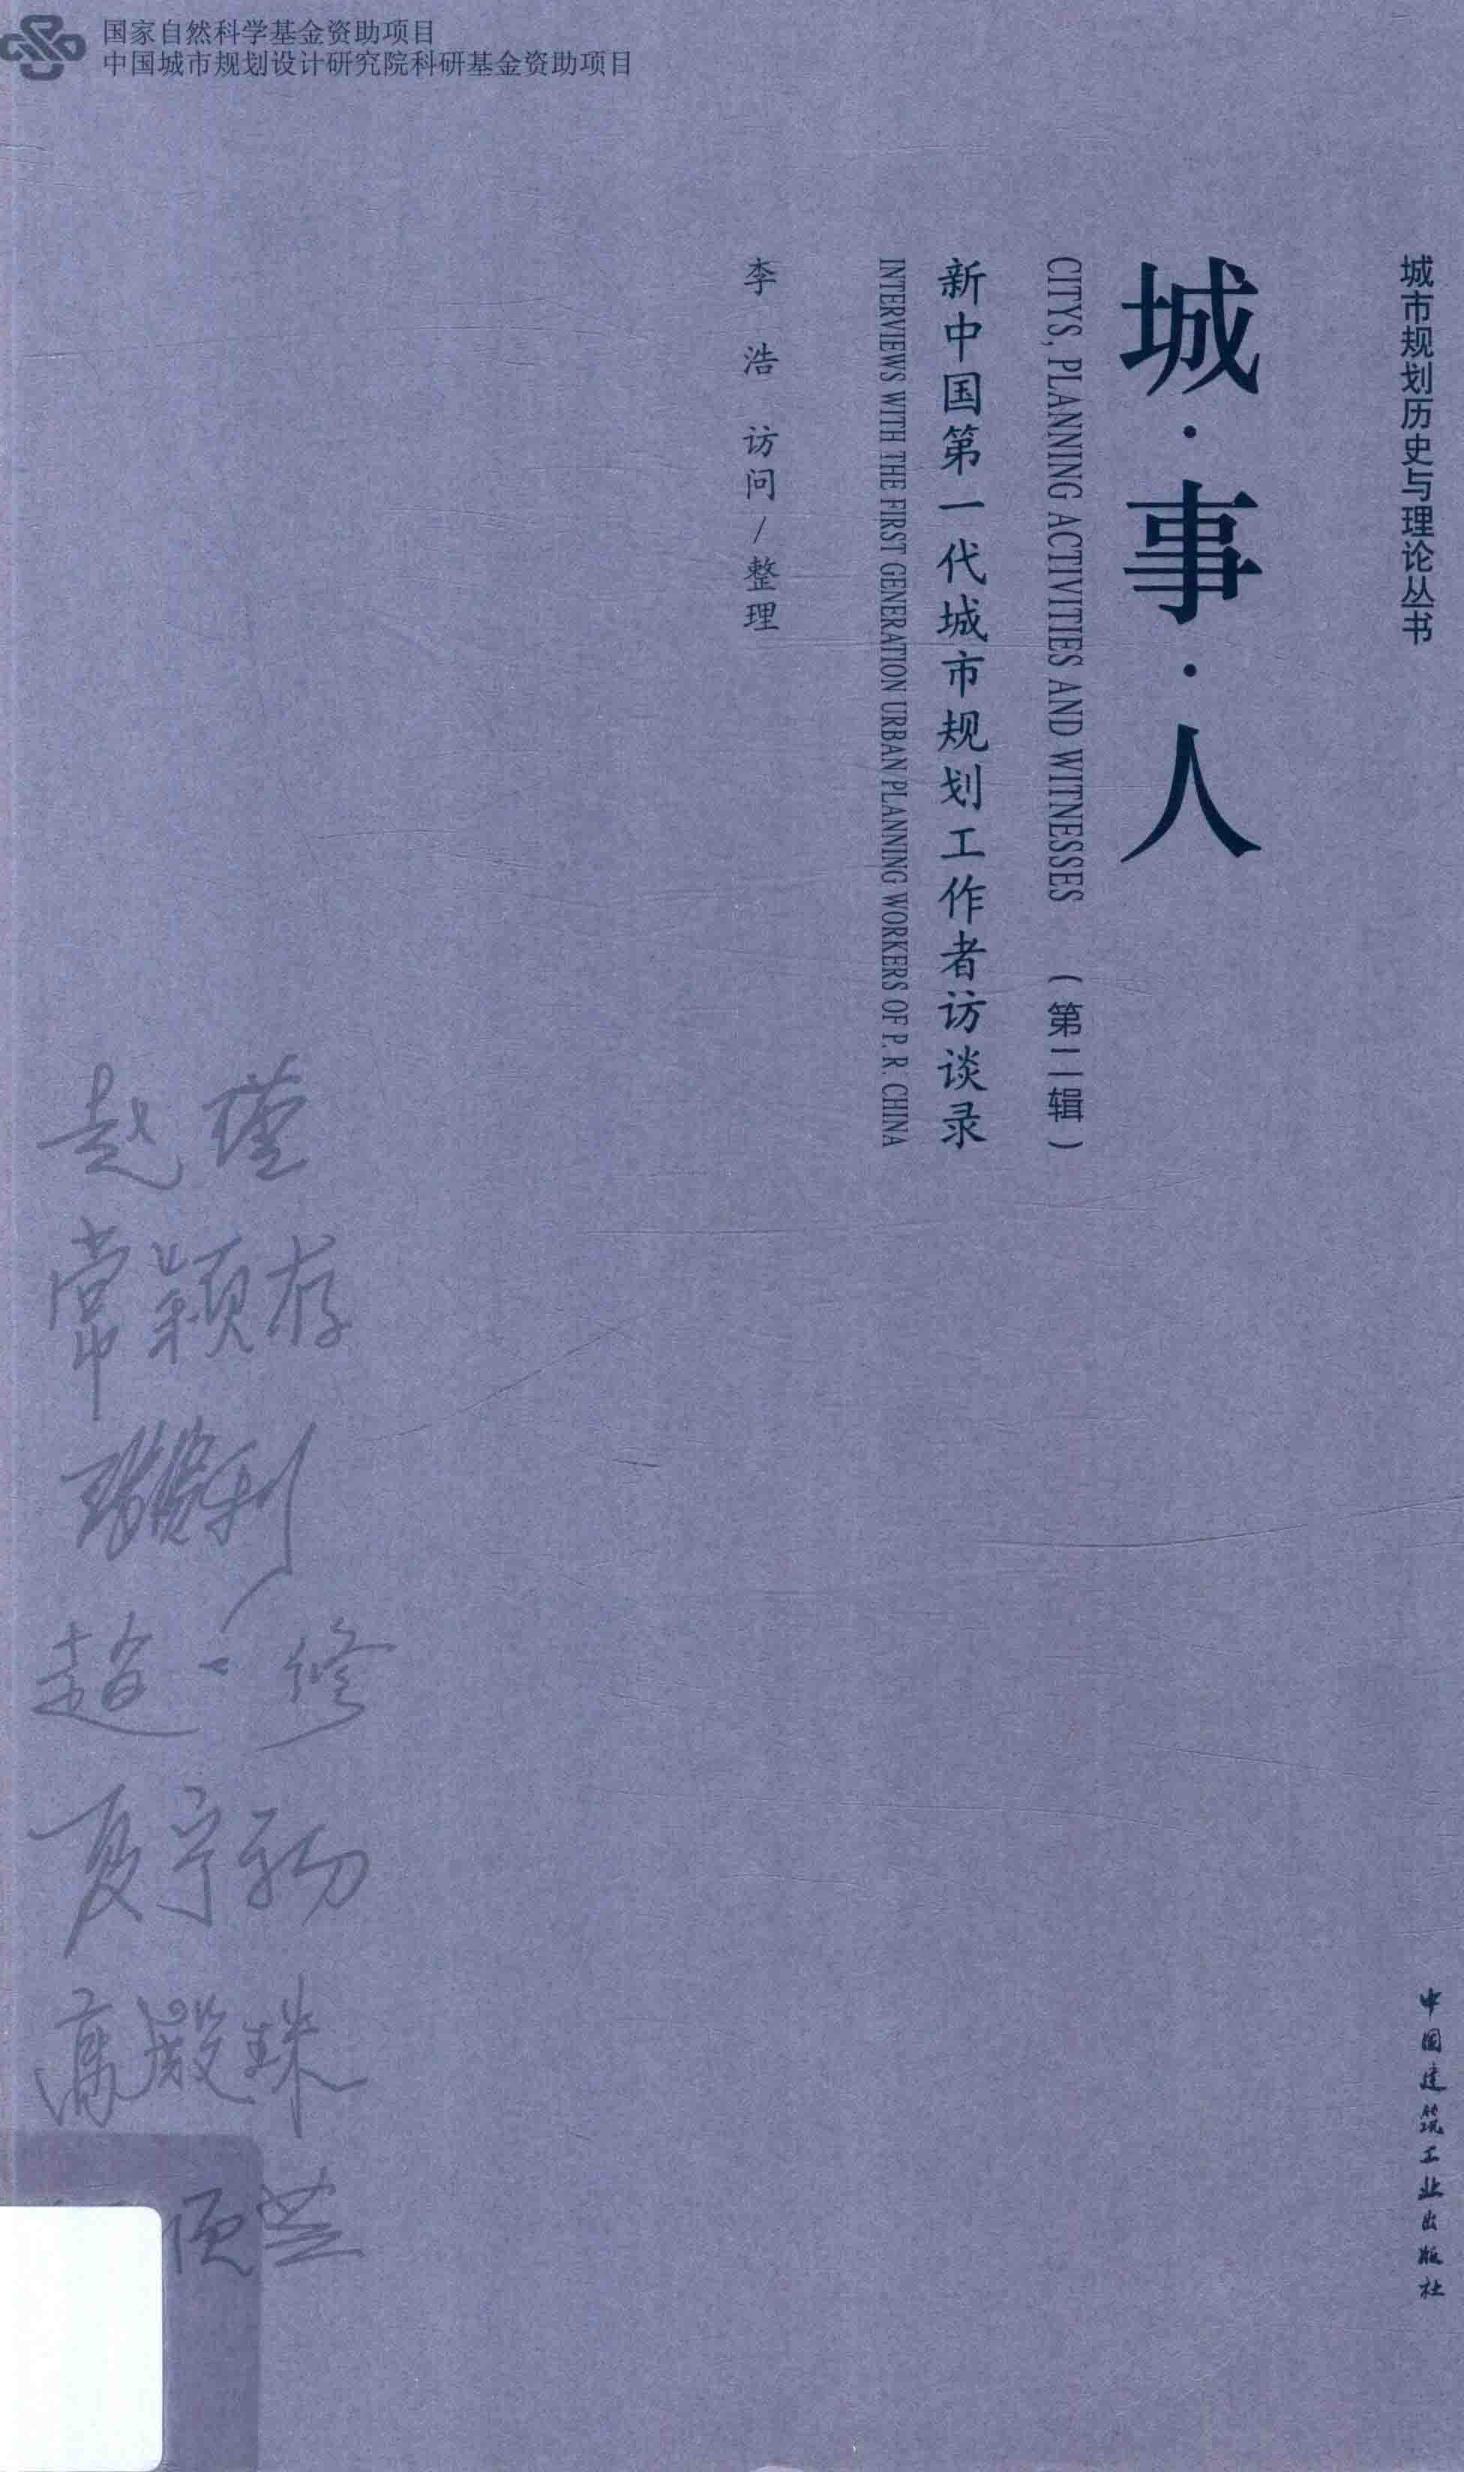 国家自然科学基金资助项目
中国城市规划设计研究院科研基金资助项目
城市规划历史与理论丛书
城·事·人
CITYS, PLANNING ACTIVITIES AND WITNESSES
（第二辑）
新中国第一代城市规划工作者访谈录
INTERVIEWS WITH THE FIRST GENERATION URBAN PLANNING WORKERS OF P. R. CHINA
李浩 访问/整理
赵瑾
常颖存
张贺利
赵士修
夏宁初
高殿珠
中国建筑工业出版社